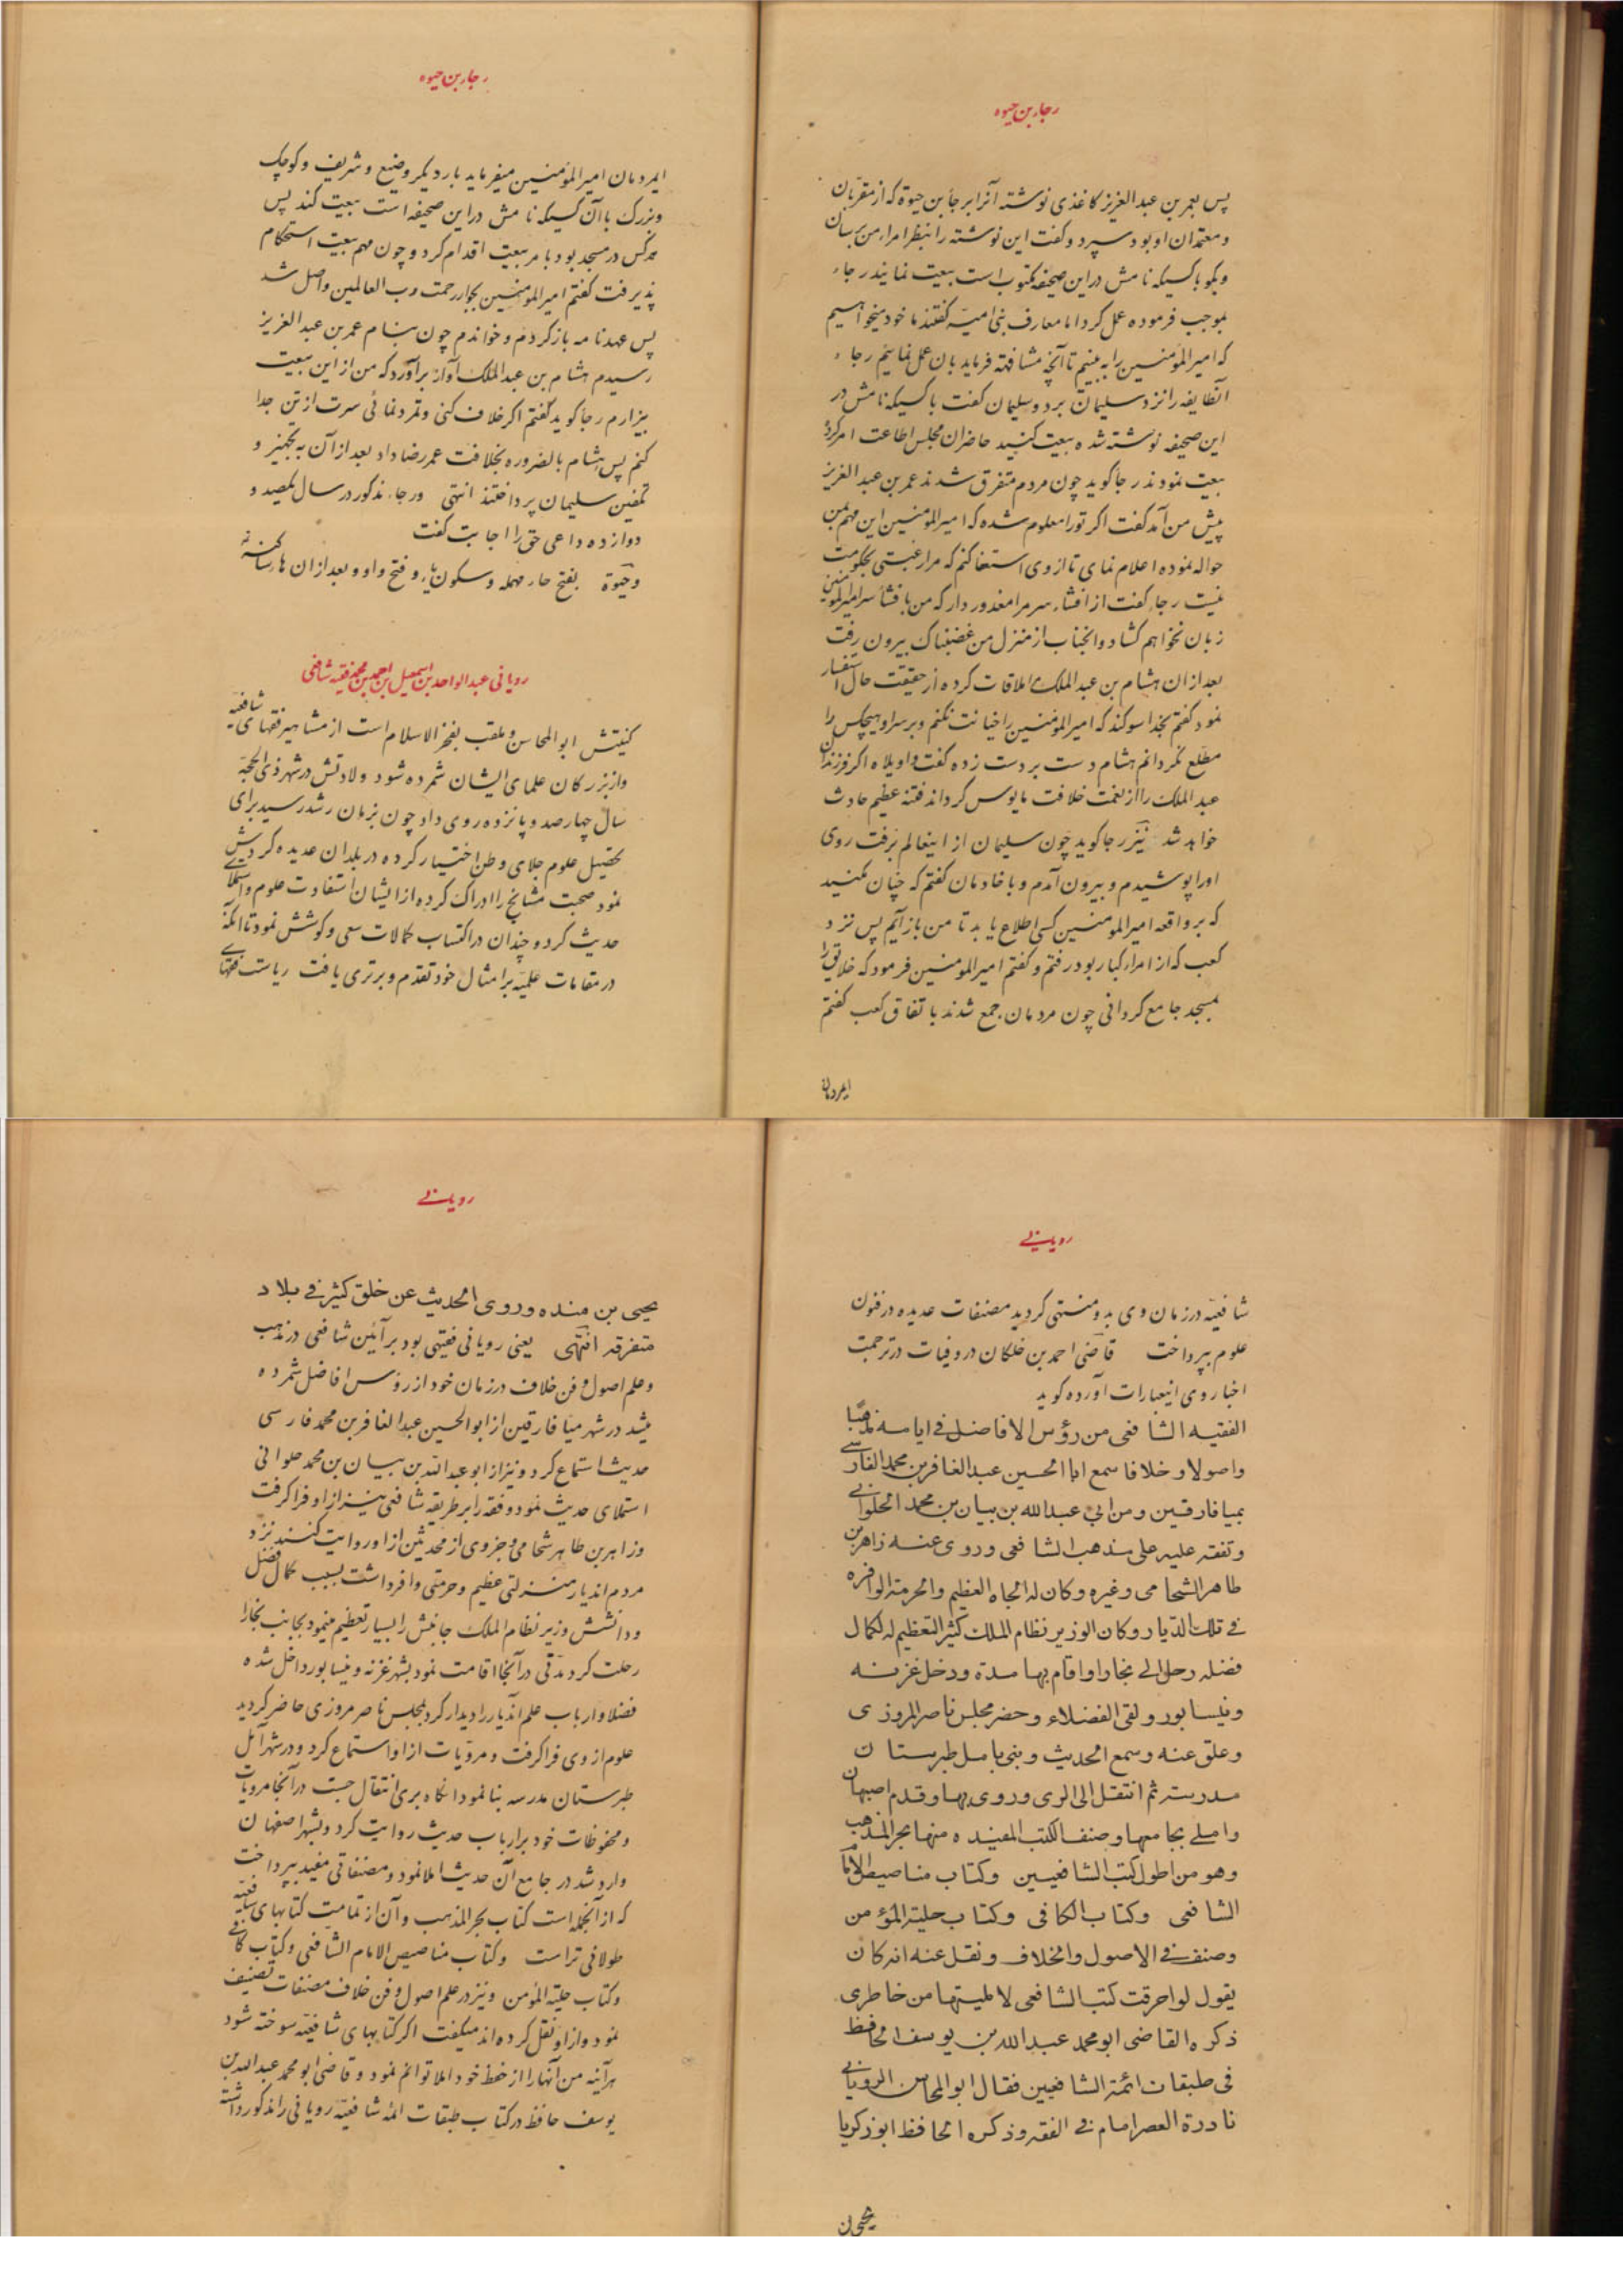 رجاء بن حیوه
پس بعمر بن عبد العزیز کاغذی نوشته آنرا برجأ بن حیوة که از مقرّبان
و معتمدان او بود سپرد و گفت این نوشته را بنظر امراء من برسان
و بگو با کسیکه نامش در این صحیفه مکتوب است بیعت نمایند رجاء
بموجب فرموده عمل کرد اما معارف بنی امیّه گفتند ما خود میخواهیم
که امیر المؤمنین را به بینیم تا آنچه مشافهة فرماید بان عمل نمائیم رجاء
آنطایفه را نزد سلیمان برد و سلیمان گفت با کسیکه نامش در
این صحیفه نوشته شده بیعت کنید حاضران مجلس اطاعت امر کرده
بیعت نمودند رجا گوید چون مردم متفرق شدند عمر بن عبد العزیز
پیش من آمد گفت اگر تو را معلوم شده که امیر المؤمنین این مهم بمن
حواله نموده اعلام نمای تا از وی استعفا کنم که مرا رغبتی بحکومت
نیست رجاء گفت از افشاء سر مرا معذور دار که من با فشأ سر امیر المؤمنین
زبان نخواهم گشاد و انجناب از منزل من غضبناک بیرون رفت
بعد از ان هشام بن عبد الملک ملاقات کرده از حقیقت حال استفسار
نمود گفتم بخدا سوکند که امیر المؤمنین را خیانت نکنم و بر سر او هیچکس را
مطلع نگردانم هشام دست بر دست زده گفت واویلاه اگر فرزندان
عبد الملک را از نعمت خلافت مایوس گرداند فتنه عظیم حادث
خواهد شد نیز رجا گوید چون سلیمان از اینعالم برفت روی
او را پوشیدم و بیرون آمدم و با خادمان گفتم که چنان نکنید
که بر واقعه امیر المومنین کسی اطلاع یابد تا من باز آیم پس نزد
کعب که از امراء کبار بود رفتم و گفتم امیر المومنین فرمود که خلایق را
بمسجد جامع گردانی چون مردمان جمع شدند باتفاق کعب گفتم
ایمردمان
رجاء بن حیوه
ایمردمان امیر المؤمنین میفرماید بار دیگر وضیع و شریف و کوچک
و بزرگ با آن کسیکه نامش در این صحیفه است بیعت کند پس
هر کس در مسجد بود بامر بیعت اقدام کرد و چون مهم بیعت استحکام
پذیرفت گفتم امیر المومنین بجوار رحمت رب العالمین واصل شد
پس عهد نامه باز کردم و خواندم چون بنام عمر بن عبد العزیز
رسیدم هشام بن عبد الملک آواز برآورد که من از این بیعت
بیزارم رجأ گوید گفتم اگر خلاف کنی و تمرد نمائی سرت از تن جدا
کنم پس هشام بالضروره بخلافت عمر رضا داد بعد از آن به تجهیز و
تکفین سلیمان پرداختند انتهی ورجاء مذکور در سال یکصد و
دوازده داعی حق را اجابت گفت
وحیوة بفتح حاء مهمله و سکون یاء و فتح واو و بعد از ان هاء ساکنه
رویانی عبد الواحد بن اسمعیل بن احمد بن محمد فقیه شافعی
کنیتش ابو المحاسن و ملقب بفخر الاسلام است از مشاهیر فقهای شافعیّه
و از بزرکان علمای ایشان شمرده شود ولادتش در شهر ذی الحجّه
سال چهار صد و پانزده روی داد چون بزمان رشد رسید برای
تحصیل علوم جلای وطن اختیار کرده در بلدان عدیده گردش
نمود صحبت مشایخ را ادراک کرده از ایشان استفادت علوم و استملاء
حدیث کرد و چندان در اکتساب کمالات سعی و کوشش نمود تا آنکه
در مقامات علمیّه بر امثال خود تقدم و برتری یافت ریاست فقهاے
رویانے
شافعیّه در زمان وی بدو منتهی گردید مصنفات عدیده در فنون
علوم بپرداخت قاضی احمد بن خلکان در وفیات در ترجمت
اخبار وی اینعبارات آورده گوید
الفقیه الشافعی من رؤس الافاضل فی ایامه مذهبًا
واصولا وخلافا سمع ابا الحسین عبد الغافر بن محمد الفارسی
بمیافارقین ومن ابی عبد الله بن بیان بن محمد الحلوانے
وتفقه علیه علی مذهب الشافعی وروی عنه زاهر بن
طاهر الشحامی وغیره وکان له الجاه العظیم والحرمة الوافره
فے تلک الدّیار وکان الوزیر نظام الملک کثیر التعظیم له لکمال
فضله رحل الے بخارا واقام بها مدة ودخل غزنه
ونیسابور ولقی الفضلاء وحضر مجلس ناصر المروزی
وعلق عنه وسمع الحدیث وبنی بامل طبرستان
مدرسة ثم انتقل الی الری وروی بها وقدم اصبهان
واملے بجامعها وصنف الکتب المفیده منها بحر المذهب
وهو من اطول کتب الشافعیین وکتاب مناصیص الامام
الشافعی وکتاب الکافی وکتاب حلیة المؤمن
وصنف فے الاصول والخلاف ونقل عنه انه کان
یقول لو احرقت کتب الشافعی لاملیتها من خاطری
ذکره القاضی ابو محمد عبد الله بن یوسف الحافظ
فی طبقات ائمة الشافعیین فقال ابو المحاسن الرویانے
نادرة العصر امام فے الفقه وذکره الحافظ ابو زکریا
یحیی بن
رویانے
یحیی بن منده وروی الحدیث عن خلق کثیر فے بلاد
متفرقه انتهی یعنی رویانی فقیهی بود بر آئین شافعی در مذهب
و علم اصول و فن خلاف در زمان خود از رؤس افاضل شمرده
میشد در شهر میّافارقین از ابو الحسین عبد الغافر بن محمد فارسی
حدیث استماع کرد و نیز از ابو عبد الله بن بیان بن محمد حلوانی
استملای حدیث نمود و فقه را بر طریقه شافعی نیز از او فرا گرفت
و زاهر بن طاهر شحامی و جزوی از محدثین از او روایت کنند نزد
مردم اندیار منزلتی عظیم و حرمتی وافر داشت بسبب کمال فضل
و دانشش وزیر نظام الملک جانبش را بسیار تعظیم مینمود بجانب بخارا
رحلت کرد مدّتی در آنجا اقامت نمود بشهر غزنه و نیسابور داخل شده
فضلا و ارباب علم اندیار را دیدار کرد بمجلس ناصر مروزی حاضر گردید
علوم از وی فرا گرفت و مرویات از او استماع کرد و در شهر آمل
طبرستان مدرسه بنا نمود انکاه بری انتقال جست در آنجا مرویات
و محفوظات خود بر ارباب حدیث روایت کرد و بشهر اصفهان
وارد شد در جامع آن حدیث املا نمود و مصنفاتی مفید بپرداخت
که از آنجمله است کتاب بحر المذهب و آن از تمامت کتابهای شافعیّه
طولانی تر است و کتاب مناصیص الامام الشافعی و کتاب کافے
و کتاب حلیة المؤمن و نیز در علم اصول و فن خلاف مصنفات تصنیف
نمود و از او نقل کرده اند میگفت اگر کتابهای شافعیّه سوخته شود
هر آینه من آنها را از حفظ خود املا توانم نمود و قاضی ابو محمد عبد الله بن
یوسف حافظ در کتاب طبقات ائمه شافعیّه رویانی را مذکور داشته